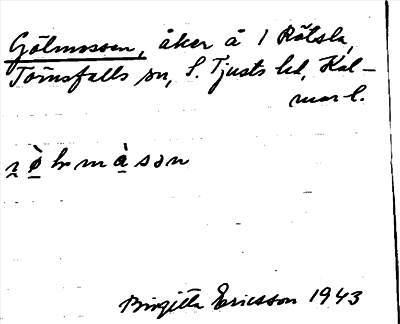 Gölmossen, åker å 1 Rötsla,
Törnsfalls sn, S. Tjusts hd, Kal-
mar l.
Birgitta Ericsson 1943